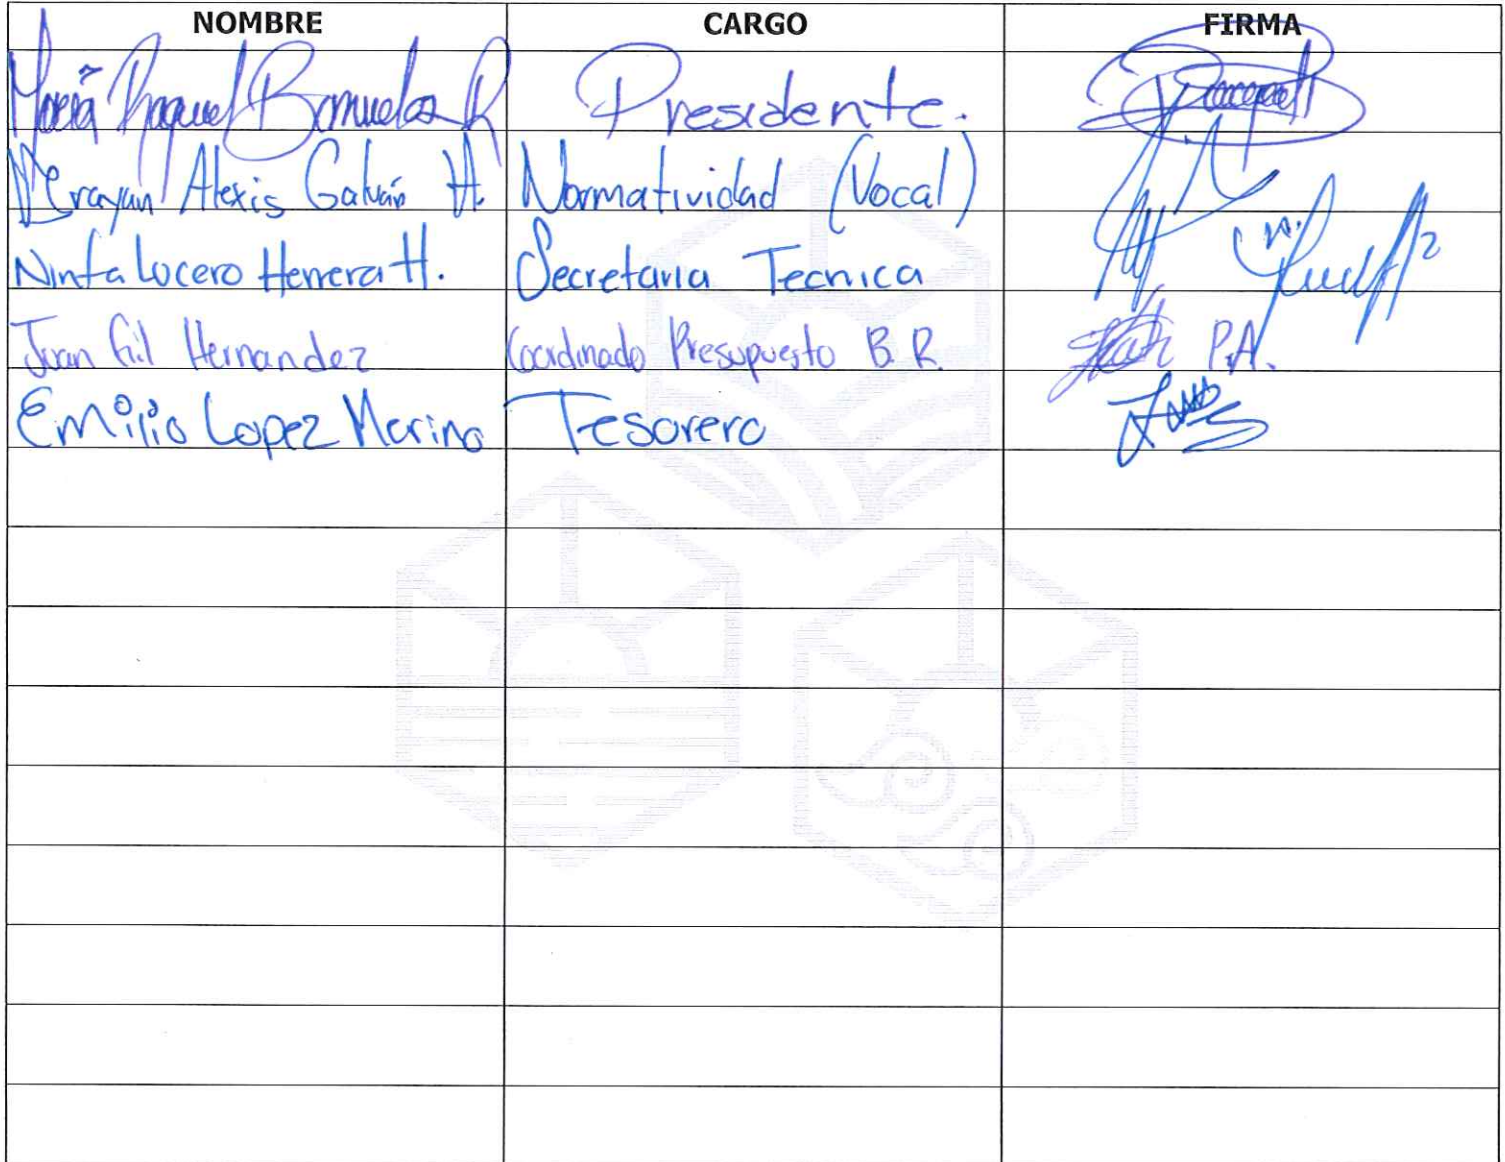 NOMBRE CARGO FIRMA
María Raquel Bañuelos R Presidente.
Brayan Alexis Galván H. Normatividad (Vocal)
Ninfa Lucero Herrera H. Secretaria Tecnica
Juan Gil Hernandez Coordinado Presupuesto B. R. P.A.
Emilio Lopez Merino Tesorero